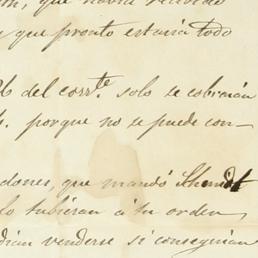 que habia recibido
y que pronto estaria todo
26 del corr.te solo se cobrirán
porque no se puede con-
dones, que mandó Shmidt
lo tubieran á tu orden,
drían venderse si conseguian